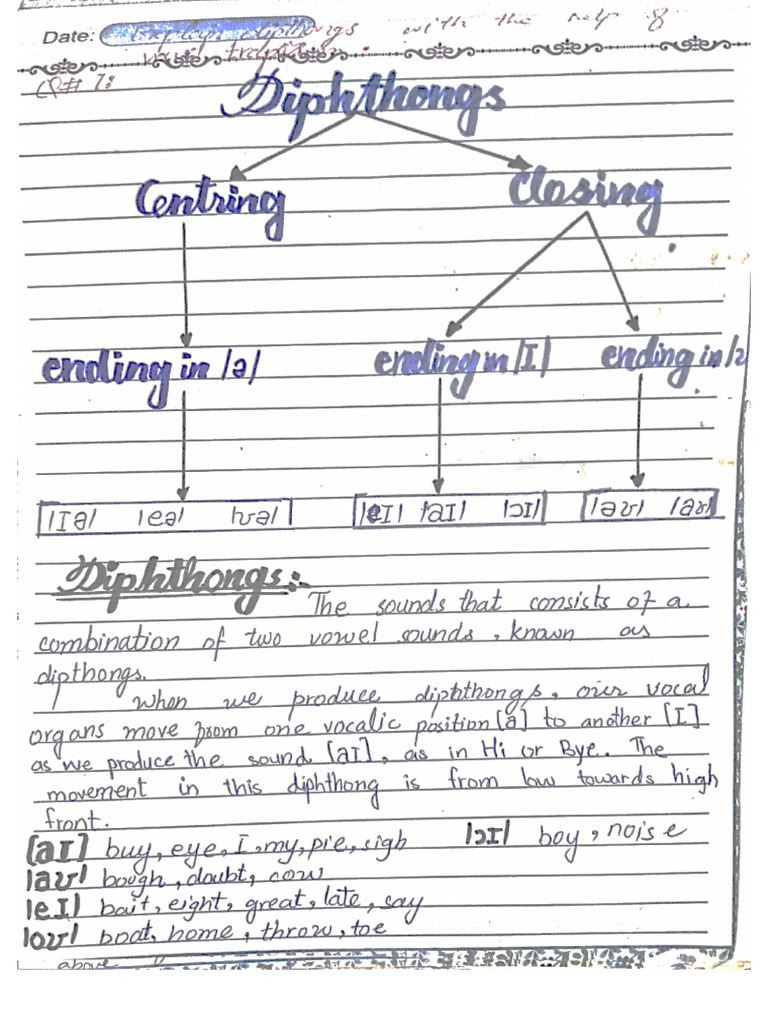 Date: Explain dipthongs with the help of
Q# 7:
Diphthongs
Centring Closing
ending in /ə/ ending in /I/ ending in /ʊ
/Iə/ /eə/ /ʊə/ /eI/ /aI/ /ɔI/ /əʊ/ /aʊ/
Diphthongs:-
The sounds that consists of a
combination of two vowel sounds, known as
dipthongs.
When we produce diphthongs, our vocal
organs move from one vocalic position [a] to another [I]
as we produce the sound [aI], as in Hi or Bye. The
movement in this diphthong is from low towards high
front.
[aI] buy, eye, I, my, pie, sigh /ɔI/ boy, noise
/aʊ/ bough, doubt, cow
/eI/ bait, eight, great, late, say
/oʊ/ boat, home, throw, toe
above "